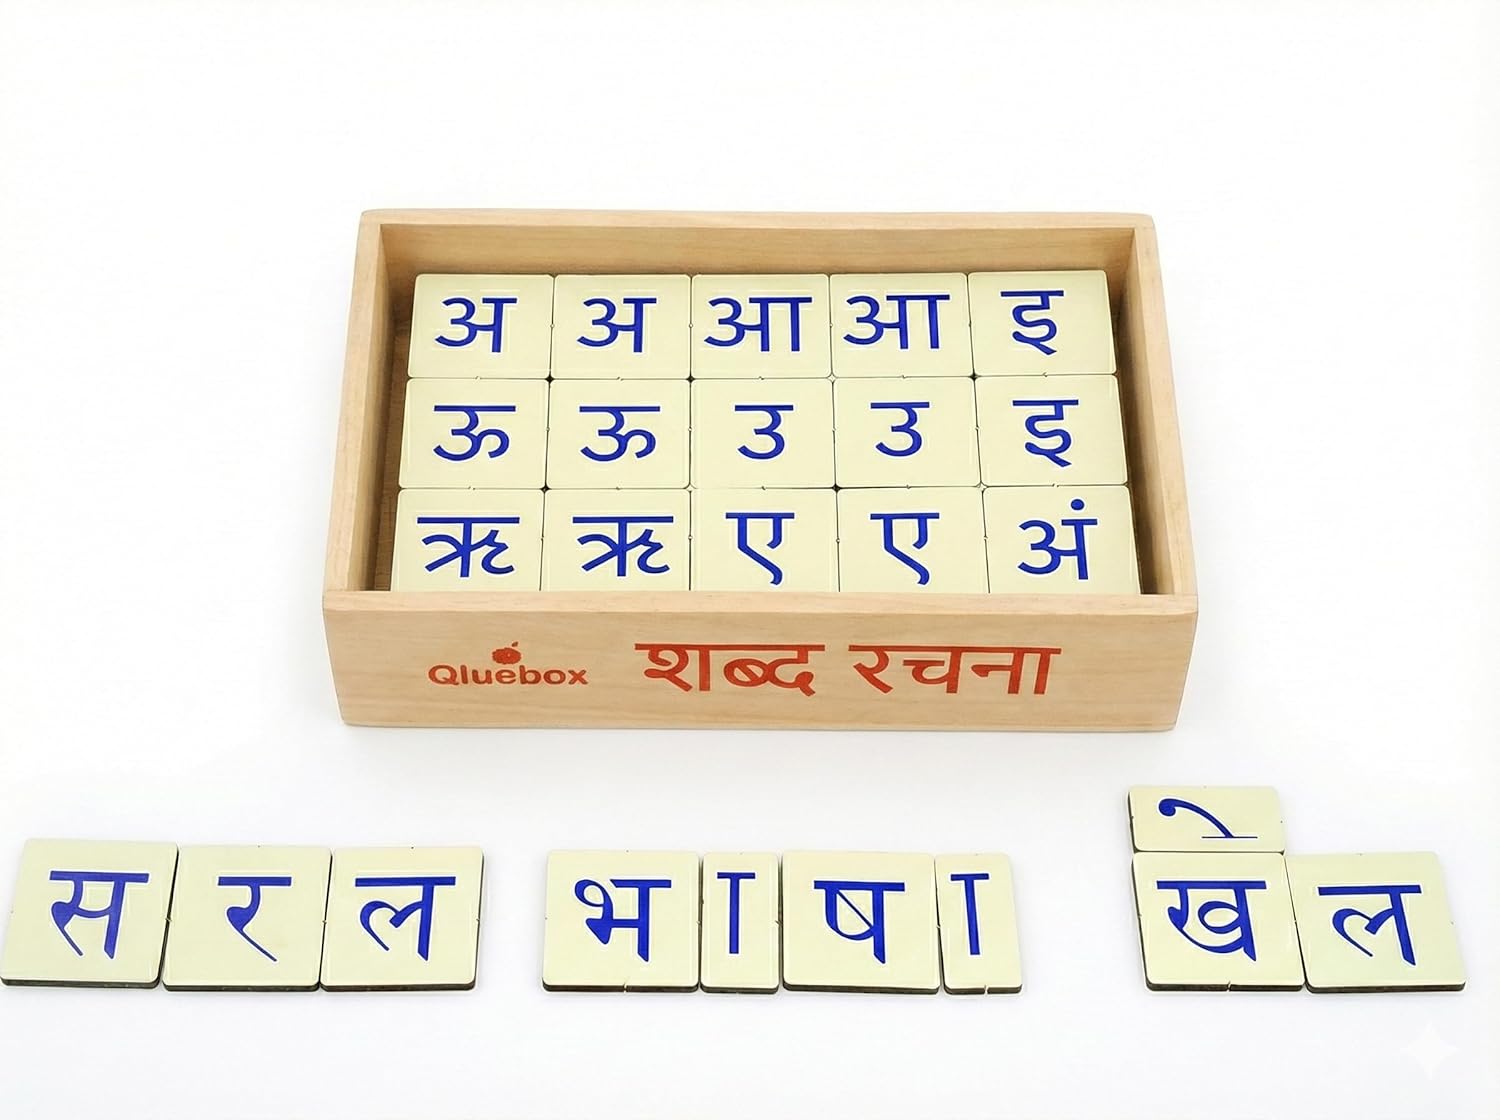 अ अ आ आ इ
ऊ ऊ उ उ इ
ऋ ऋ ए ए अं
Qluebox शब्द रचना
सरल भाषा खेल